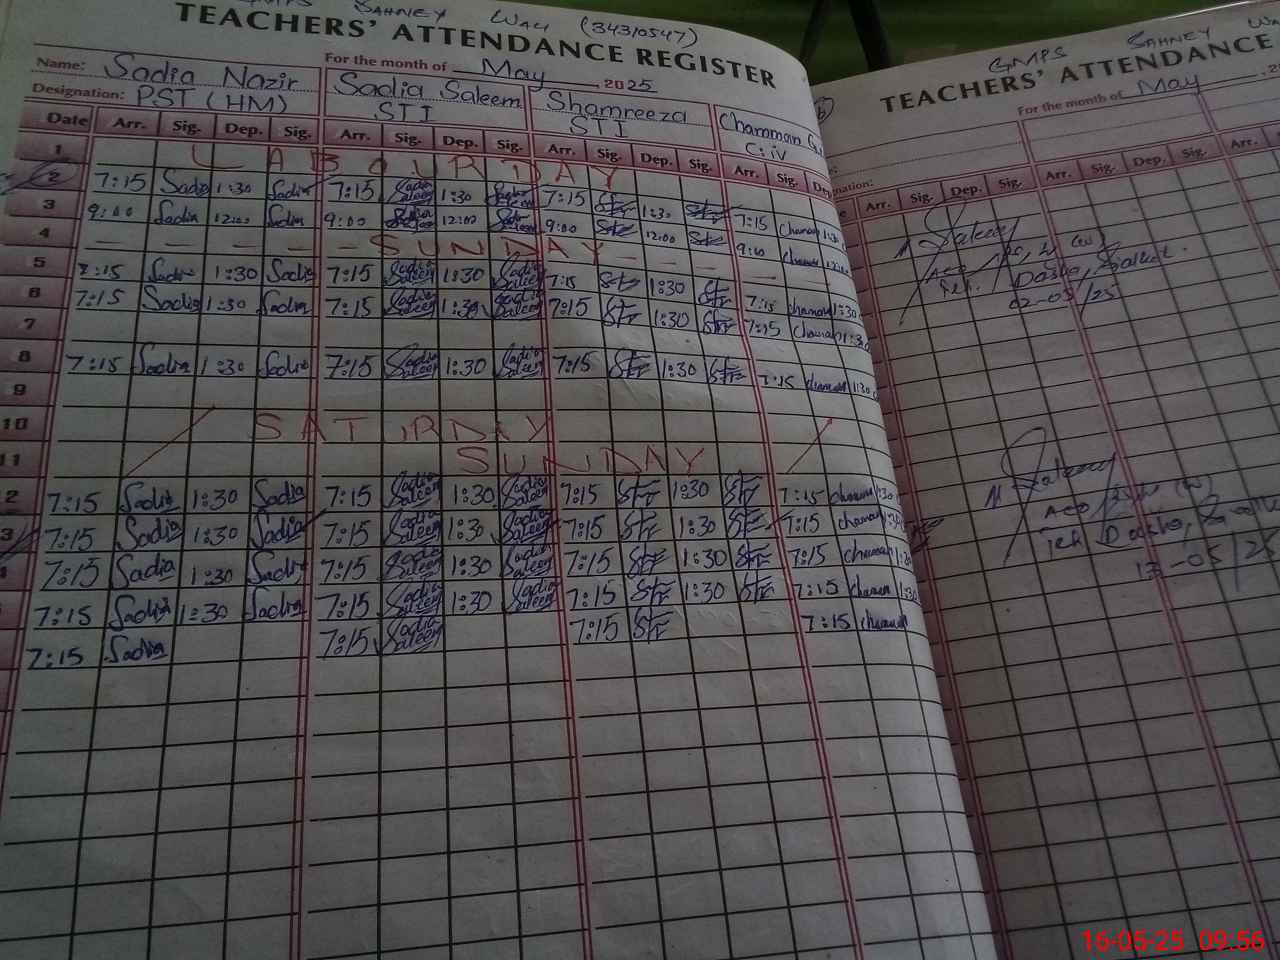 GMPS SAHNEY WALI (34310547)
TEACHERS' ATTENDANCE REGISTER
For the month of May 2025
Name: Sadia Nazir Sadia Saleem Shamreeza Chamman
Designation: PST (HM) STI STI C:iv
Date Arr. Sig. Dep. Sig. Arr. Sig. Dep. Sig. Arr. Sig. Dep. Sig. Arr. Sig. Dep
1 LABOUR DAY
2 7:15 Sadia 1:30 Sadia 7:15 Sadia Saleem 1:30 Sadia Saleem 7:15 1:30 7:15 chaman 1:30
3 9:00 Sadia 12:00 Sadia 9:00 Sadia Saleem 12:00 Sadia Saleem 9:00 12:00 9:00 chaman 12:00
4 SUNDAY
5 7:15 Sadia 1:30 Sadia 7:15 Sadia Saleem 1:30 Sadia Saleem 7:15 1:30 7:15 chaman 1:30
6 7:15 Sadia 1:30 Sadia 7:15 Sadia Saleem 1:30 Sadia Saleem 7:15 1:30 7:15 chaman 1:30
7
8 7:15 Sadia 1:30 Sadia 7:15 Sadia Saleem 1:30 Sadia Saleem 7:15 1:30 7:15 chaman 1:30
9
10 SATURDAY
11 SUNDAY
2 7:15 Sadia 1:30 Sadia 7:15 Sadia Saleem 1:30 Sadia Saleem 7:15 1:30 7:15 chaman 1:30
3 7:15 Sadia 1:30 Sadia 7:15 Sadia Saleem 1:30 Sadia Saleem 7:15 1:30 7:15 chaman
7:15 Sadia 1:30 Sadia 7:15 Sadia Saleem 1:30 Sadia Saleem 7:15 1:30 7:15 chaman
7:15 Sadia 1:30 Sadia 7:15 Sadia Saleem 1:30 Sadia Saleem 7:15 1:30 7:15 chaman
7:15 Sadia 7:15 Sadia Saleem 7:15 7:15 chaman
GMPS SAHNEY
TEACHERS' ATTENDANCE
For the month of May
Arr. Sig. Dep. Sig. Arr. Sig. Dep. Sig. Arr.
02-05/25
13-05/25
16-05-25 09:56